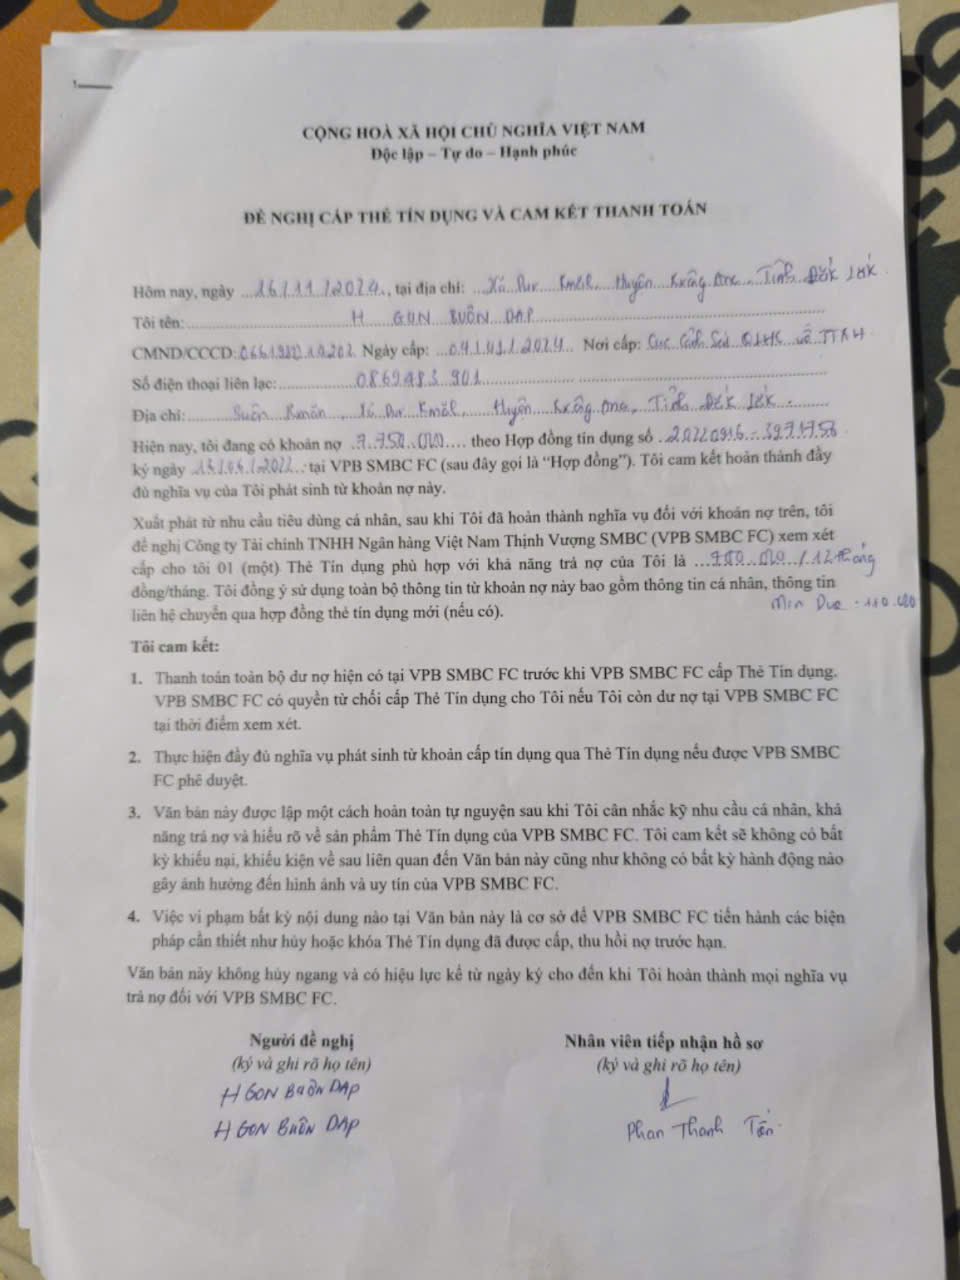 CỘNG HOÀ XÃ HỘI CHỦ NGHĨA VIỆT NAM
Độc lập – Tự do – Hạnh phúc
ĐỀ NGHỊ CẤP THẺ TÍN DỤNG VÀ CAM KẾT THANH TOÁN
Hôm nay, ngày 16/11/2024, tại địa chỉ: Xã Dur Kmăl, Huyện Krông Ana, Tỉnh Đắk Lắk.
Tôi tên: H GON BUÔN DAP
CMND/CCCD: Ngày cấp: Nơi cấp: Cục Cảnh Sát QLHC về TTXH
Số điện thoại liên lạc: 0869483901
Địa chỉ: Buôn Kmăn, Xã Dur Kmăl, Huyện Krông Ana, Tỉnh Đắk Lắk.
Hiện nay, tôi đang có khoản nợ 7.750.000 theo Hợp đồng tín dụng số 20220916-3971756
ký ngày tại VPB SMBC FC (sau đây gọi là “Hợp đồng”). Tôi cam kết hoàn thành đầy
đủ nghĩa vụ của Tôi phát sinh từ khoản nợ này.
Xuất phát từ nhu cầu tiêu dùng cá nhân, sau khi Tôi đã hoàn thành nghĩa vụ đối với khoản nợ trên, tôi
đề nghị Công ty Tài chính TNHH Ngân hàng Việt Nam Thịnh Vượng SMBC (VPB SMBC FC) xem xét
cấp cho tôi 01 (một) Thẻ Tín dụng phù hợp với khả năng trả nợ của Tôi là /12 tháng
đồng/tháng. Tôi đồng ý sử dụng toàn bộ thông tin từ khoản nợ này bao gồm thông tin cá nhân, thông tin
liên hệ chuyển qua hợp đồng thẻ tín dụng mới (nếu có). Min Due
Tôi cam kết:
1. Thanh toán toàn bộ dư nợ hiện có tại VPB SMBC FC trước khi VPB SMBC FC cấp Thẻ Tín dụng.
VPB SMBC FC có quyền từ chối cấp Thẻ Tín dụng cho Tôi nếu Tôi còn dư nợ tại VPB SMBC FC
tại thời điểm xem xét.
2. Thực hiện đầy đủ nghĩa vụ phát sinh từ khoản cấp tín dụng qua Thẻ Tín dụng nếu được VPB SMBC
FC phê duyệt.
3. Văn bản này được lập một cách hoàn toàn tự nguyện sau khi Tôi cân nhắc kỹ nhu cầu cá nhân, khả
năng trả nợ và hiểu rõ về sản phẩm Thẻ Tín dụng của VPB SMBC FC. Tôi cam kết sẽ không có bất
kỳ khiếu nại, khiếu kiện về sau liên quan đến Văn bản này cũng như không có bất kỳ hành động nào
gây ảnh hưởng đến hình ảnh và uy tín của VPB SMBC FC.
4. Việc vi phạm bất kỳ nội dung nào tại Văn bản này là cơ sở để VPB SMBC FC tiến hành các biện
pháp cần thiết như hủy hoặc khóa Thẻ Tín dụng đã được cấp, thu hồi nợ trước hạn.
Văn bản này không hủy ngang và có hiệu lực kể từ ngày ký cho đến khi Tôi hoàn thành mọi nghĩa vụ
trả nợ đối với VPB SMBC FC.
Người đề nghị Nhân viên tiếp nhận hồ sơ
(ký và ghi rõ họ tên) (ký và ghi rõ họ tên)
H GON BUÔN DAP
H GON BUÔN DAP Phan Thanh Tấn